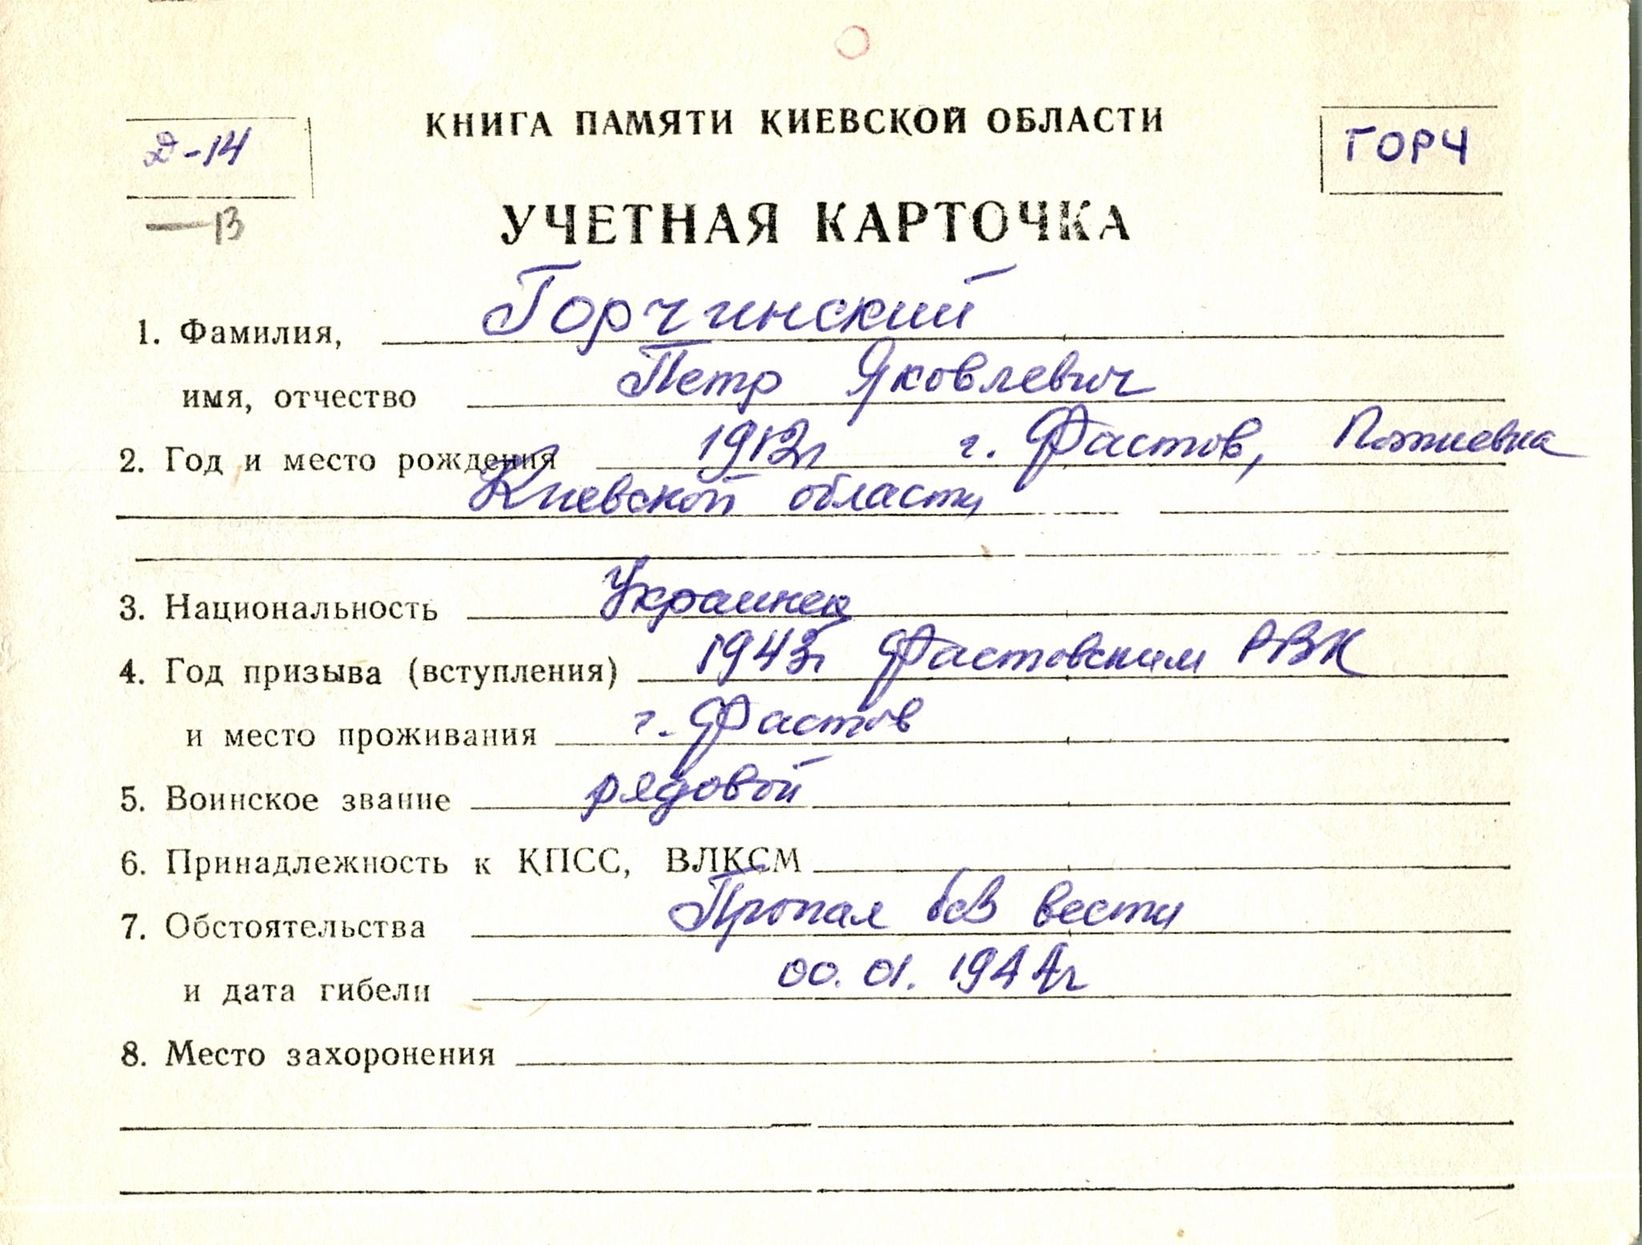 КНИГА ПАМЯТИ КИЕВСКОЙ ОБЛАСТИ
Д-14
ГОРЧ
—13
УЧЕТНАЯ КАРТОЧКА
1. Фамилия, Горчинский
имя, отчество Петр Яковлевич
2. Год и место рождения 1912г г. Фастов,
Киевской области
3. Национальность Украинец
4. Год призыва (вступления) 1943г Фастовским РВК
и место проживания г. Фастов
5. Воинское звание рядовой
6. Принадлежность к КПСС, ВЛКСМ
7. Обстоятельства Пропал без вести
и дата гибели 00.01.1944г
8. Место захоронения